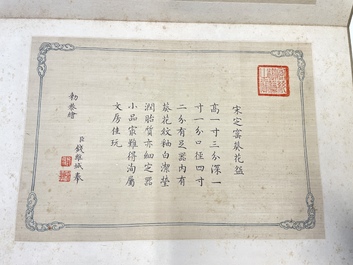 宋定窑葵花盌
高一寸三分深一
寸一分口徑四寸
二分有足器內有
葵花紋釉白潔瑩
潤胎質亦細定器
小品宲難得尚屬
文房佳玩
臣錢維城奉
勅恭繪